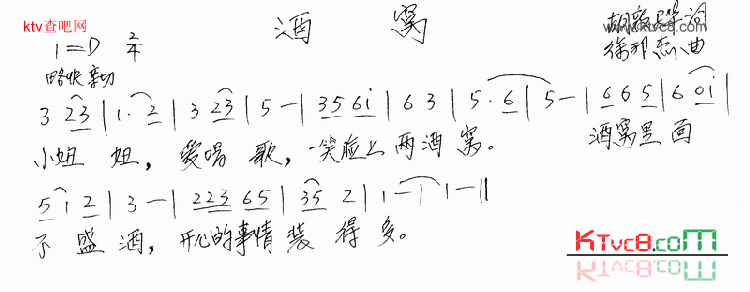 ktv查吧网
www.ktvc8.com
酒 窝
1=D 2/4
略快 亲切
词
徐邦杰曲
3 23 | 1· 2 | 3 23 | 5 — | 35 6i | 6 3 | 5· 6 | 5 — | 6 6 5 | 6 0i |
小妞 妞，爱唱 歌，笑脸上 两酒 窝。 酒窝里 面
5 i 2 | 3 — | 223 65 | 35 2 | 1 — | 1 — ‖
不 盛 酒，开心的事情 装 得 多。
KTvc8.com